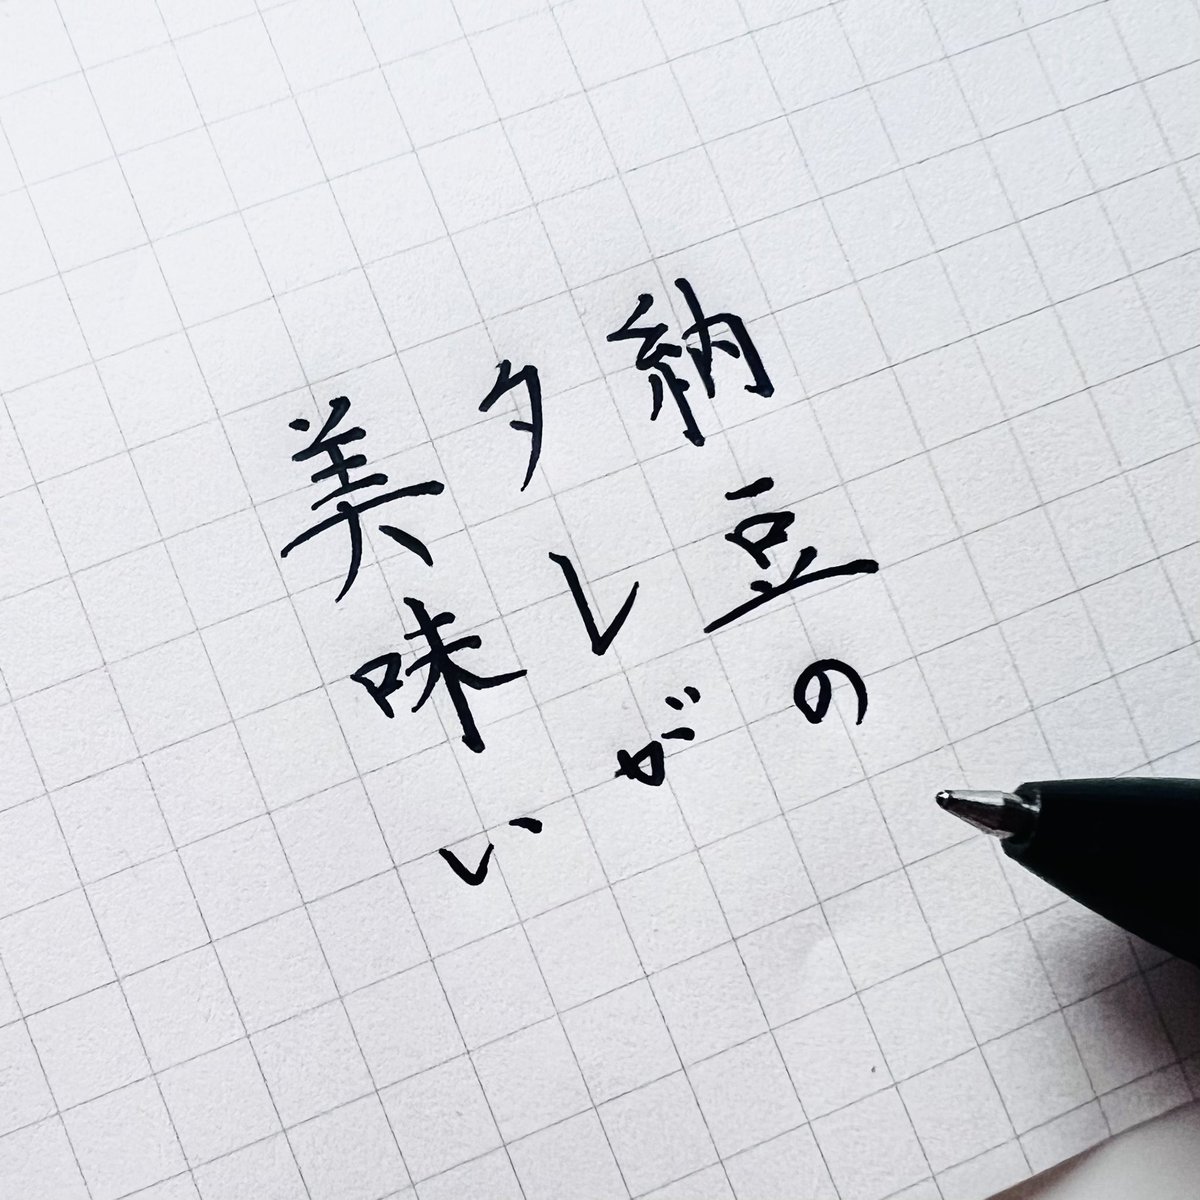 納豆の
タレが
美味い